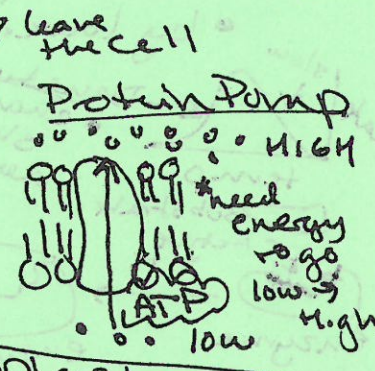 leave
the cell
Protein Pump
HIGH
*need
energy
to go
low →
High
ATP
low